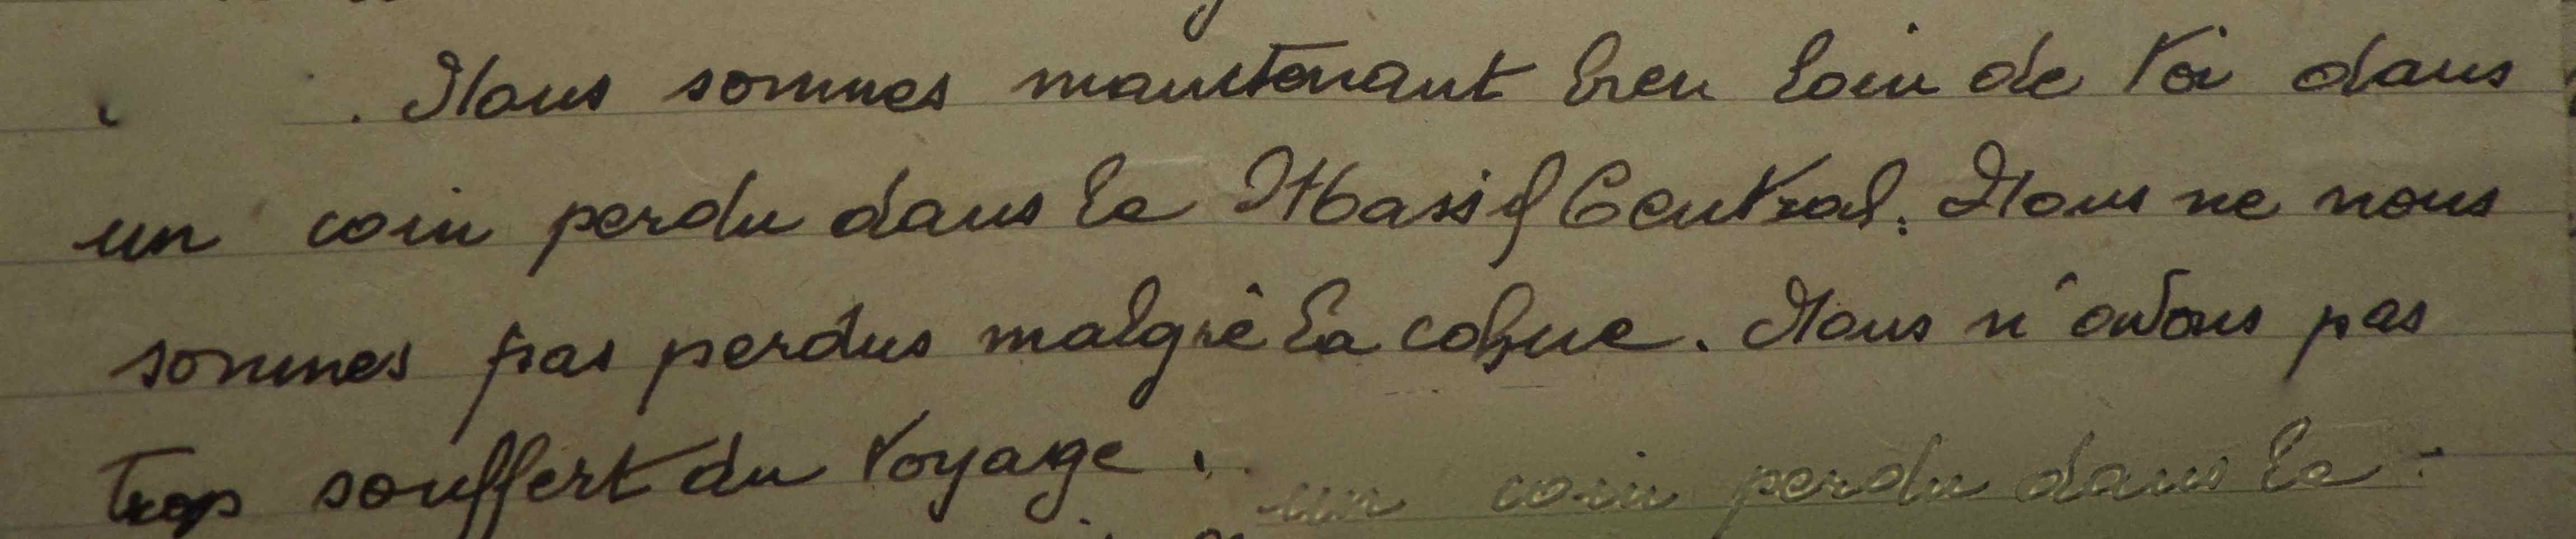 . Nous sommes maintenant bien loin de toi dans
un coin perdu dans le Massif Central. Nous ne nous
sommes pas perdus malgré la cohue. Nous n'avons pas
trop souffert du voyage.
un coin perdu dans le